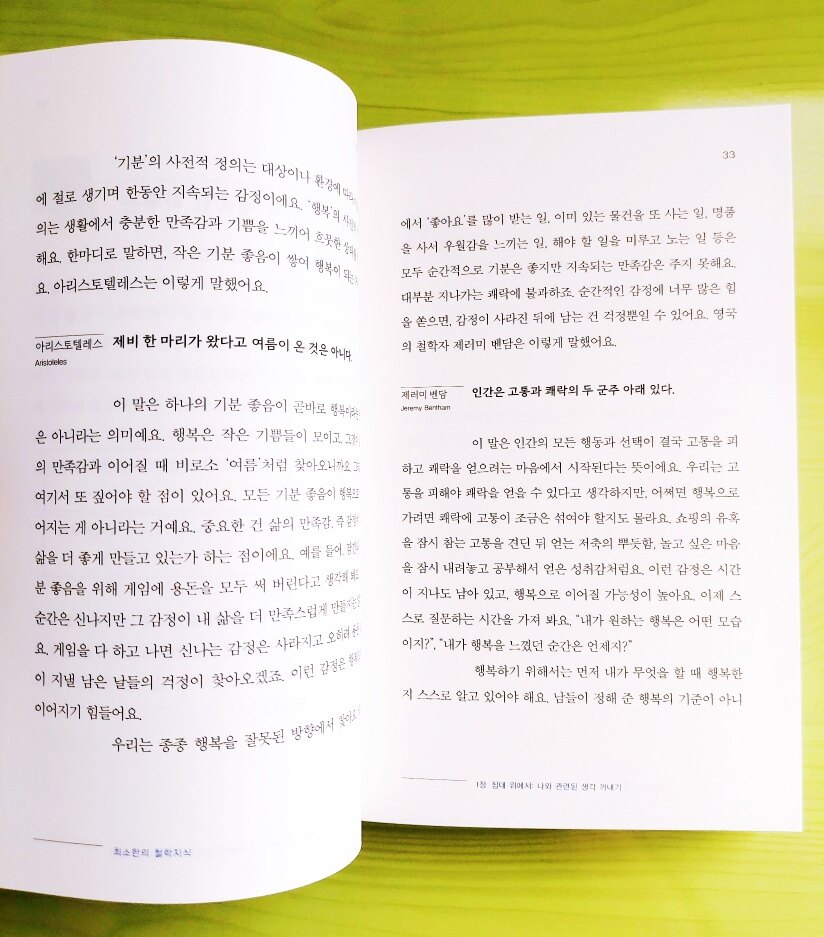 '기분'의 사전적 정의는 대상이나 환경에 따라
에 절로 생기며 한동안 지속되는 감정이에요. '행복'의 사전적
의는 생활에서 충분한 만족감과 기쁨을 느끼어 흐뭇한 상태
해요. 한마디로 말하면, 작은 기분 좋음이 쌓여 행복이 되는
요. 아리스토텔레스는 이렇게 말했어요.
아리스토텔레스 제비 한 마리가 왔다고 여름이 온 것은 아니다.
Aristoteles
이 말은 하나의 기분 좋음이 곧바로 행복이라는
은 아니라는 의미예요. 행복은 작은 기쁨들이 모이고,
의 만족감과 이어질 때 비로소 '여름'처럼 찾아오니까요.
여기서 또 짚어야 할 점이 있어요. 모든 기분 좋음이 행복으로
어지는 게 아니라는 거예요. 중요한 건 삶의 만족감, 즉
삶을 더 좋게 만들고 있는가 하는 점이에요. 예를 들어,
분 좋음을 위해 게임에 용돈을 모두 써 버린다고 생각해
순간은 신나지만 그 감정이 내 삶을 더 만족스럽게 만들지는
요. 게임을 다 하고 나면 신나는 감정은 사라지고 오히려
이 지낼 남은 날들의 걱정이 찾아오겠죠. 이런 감정은
이어지기 힘들어요.
우리는 종종 행복을 잘못된 방향에서 찾아요.
최소한의 철학지식
33
에서 '좋아요'를 많이 받는 일, 이미 있는 물건을 또 사는 일, 명품
을 사서 우월감을 느끼는 일, 해야 할 일을 미루고 노는 일 등은
모두 순간적으로 기분은 좋지만 지속되는 만족감은 주지 못해요.
대부분 지나가는 쾌락에 불과하죠. 순간적인 감정에 너무 많은 힘
을 쏟으면, 감정이 사라진 뒤에 남는 건 걱정뿐일 수 있어요. 영국
의 철학자 제러미 벤담은 이렇게 말했어요.
제러미 벤담 인간은 고통과 쾌락의 두 군주 아래 있다.
Jeremy Bentham
이 말은 인간의 모든 행동과 선택이 결국 고통을 피
하고 쾌락을 얻으려는 마음에서 시작된다는 뜻이에요. 우리는 고
통을 피해야 쾌락을 얻을 수 있다고 생각하지만, 어쩌면 행복으로
가려면 쾌락에 고통이 조금은 섞여야 할지도 몰라요. 쇼핑의 유혹
을 잠시 참는 고통을 견딘 뒤 얻는 저축의 뿌듯함, 놀고 싶은 마음
을 잠시 내려놓고 공부해서 얻은 성취감처럼요. 이런 감정은 시간
이 지나도 남아 있고, 행복으로 이어질 가능성이 높아요. 이제 스
스로 질문하는 시간을 가져 봐요. "내가 원하는 행복은 어떤 모습
이지?", "내가 행복을 느꼈던 순간은 언제지?"
행복하기 위해서는 먼저 내가 무엇을 할 때 행복한
지 스스로 알고 있어야 해요. 남들이 정해 준 행복의 기준이 아니
1장 침대 위에서: 나와 관련된 생각 꺼내기